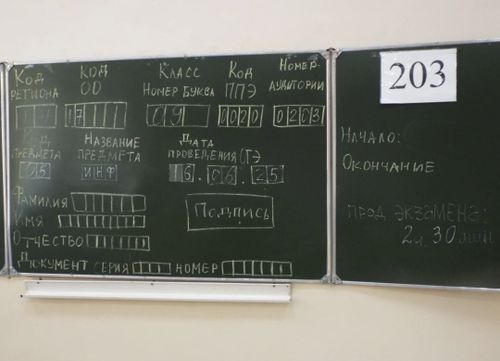 Код региона
Код ОО
Класс
Номер Буква
Код ППЭ
Номер аудитории
17
09
0020
0203
Код предмета
Название предмета
Дата проведения ОГЭ
05
ИНФ
16.06.25
Фамилия
Имя
Отчество
Подпись
Документ серия номер
203
Начало:
Окончание
Прод. экзамена:
2ч. 30 мин